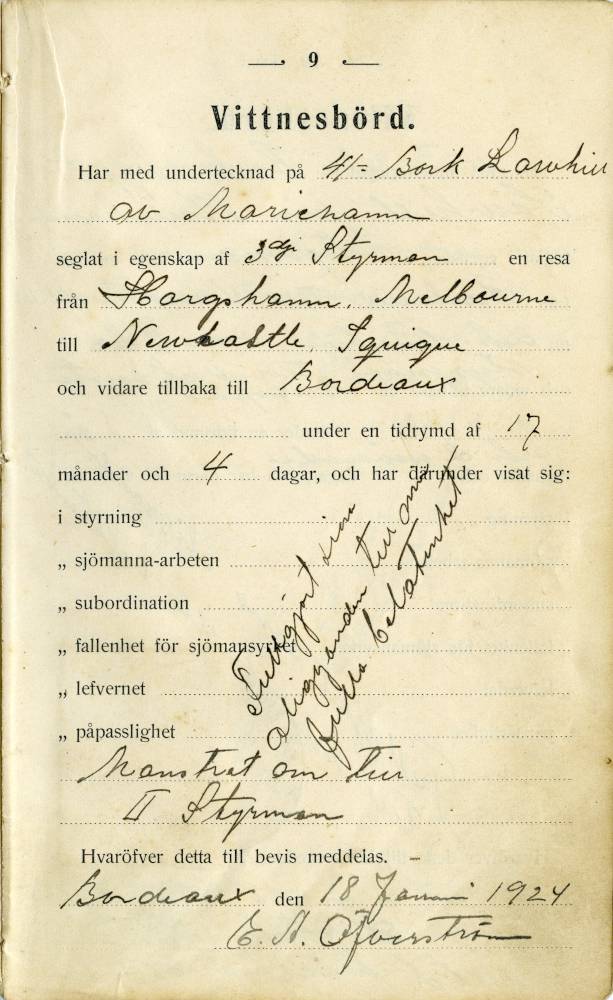 9
Vittnesbörd.
Har med undertecknad på 4/= Bark Lawhill
av Mariehamn
seglat i egenskap af 3dje Styrman en resa
från Hargshamn, Melbourne
till Newcastle, Iquique
och vidare tillbaka till Bordeaux
under en tidrymd af 17
månader och 4 dagar, och har därunder visat sig:
i styrning
„ sjömanna-arbeten
„ subordination
„ fallenhet för sjömansyrket
„ lefvernet
„ påpasslighet
Fullgjort sina
åligganden till min
fulla belåtenhet
Mönstrat om till
II Styrman
Hvaröfver detta till bevis meddelas. –
Bordeaux den 18 Januari 1924
E. A. Öfverström